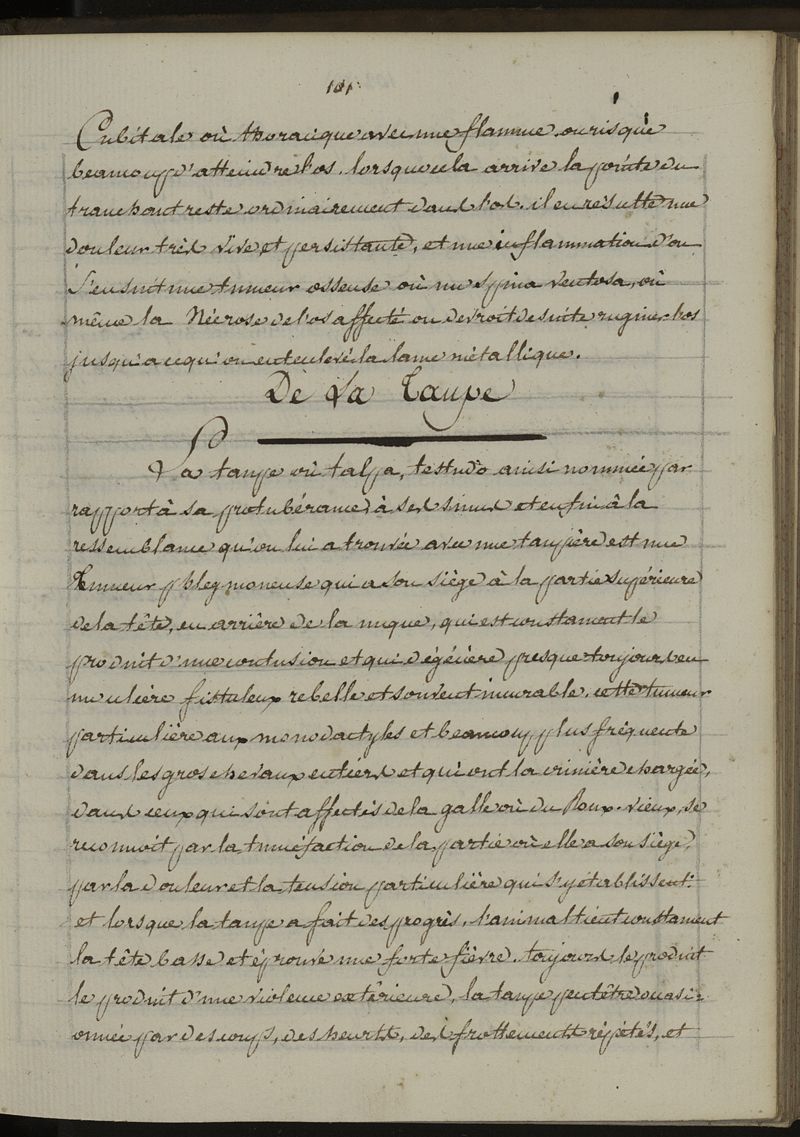 101
Cubitale où thoracique avec une flamme. on risque
beaucoup d'atteindre l'os. lorsque cela arrive la pointe du
tranchant reste ordinairement dans l'os. il en résulte une
douleur très vive et persistante, et une inflammation d'ou
s'ensuit une tumeur osseuse où un spina ventosa, où
même la Nécrose de l'os affecté on devroit desuite ruginer l'os
jusqu'a ce qu'on ent enlevé la lame métallique.
De La Taupe
La taupe où talpa, testudo ainsi nommée par
rapport à sa protubérance, à ses sinus et enfin à la
ressemblance qu'on lui a trouvée avec une taupière est une
Tumeur phlegmoneuse qui a son siège à la partie supérieure
de la tête, en arrière de la nuque, qui est constament le
produit d'une contusion et qui dégénère presque toujours en
un ulcère fistuleux rebelle et souvent incurable. cette tumeur
particulière aux monodactyles et beaucoup plus fréquente
dans les gros chevaux entiers et qui ont la crinière chargée,
dans ceux qui sont affectés de la galle où du Roux-vieux, se
reconnoit par la tumefaction de la partie où elle a son siège,
par la douleur et la tension particulière qui s'y etablissent.
et lorsque la taupe a fait des progrès, l'animal tient constament
la tête basse et éprouve une forte fièvre. toujours le produit
le produit d'une violence extérieure, la taupe peut être ocasi-
onnée par des coups, des heurts, des frottements répétés, et